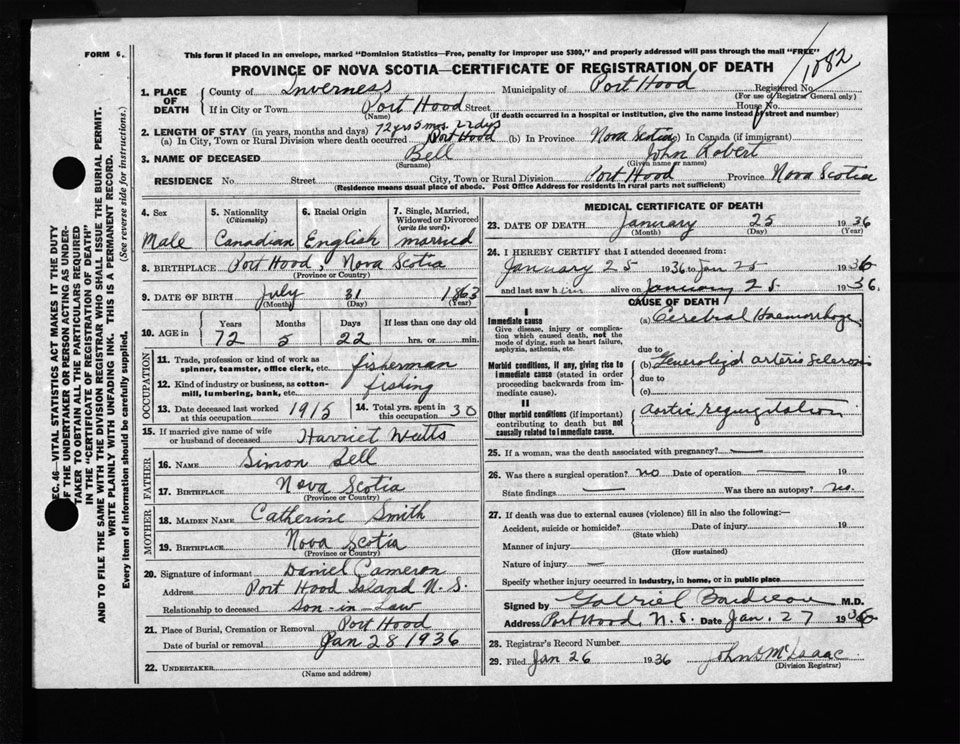 FORM 6.
This form if placed in an envelope, marked "Dominion Statistics—Free, penalty for improper use $300," and properly addressed will pass through the mail "FREE"
PROVINCE OF NOVA SCOTIA—CERTIFICATE OF REGISTRATION OF DEATH
1082
1. PLACE OF DEATH County of Inverness Municipality of Port Hood Registered No.
(For use of Registrar General only)
If in City or Town Port Hood Street House No.
(Name) (If death occurred in a hospital or institution, give the name instead of street and number)
2. LENGTH OF STAY (in years, months and days) 72 yrs 5 mos. 22 days
(a) In City, Town or Rural Division where death occurred Port Hood (b) In Province Nova Scotia (c) In Canada (if immigrant)
3. NAME OF DECEASED Bell John Robert
(Surname) (Given name or names)
RESIDENCE No Street City, Town or Rural Division Port Hood Province Nova Scotia
(Residence means usual place of abode. Post Office Address for residents in rural parts not sufficient)
4. Sex 5. Nationality (Citizenship) 6. Racial Origin 7. Single, Married, Widowed or Divorced (write the word)
Male Canadian English married
8. BIRTHPLACE Port Hood, Nova Scotia
(Province or Country)
9. DATE OF BIRTH July 31 1863
(Month) (Day) (Year)
10. AGE in Years Months Days If less than one day old
72 5 22 hrs. or min.
OCCUPATION
11. Trade, profession or kind of work as spinner, teamster, office clerk, etc. fisherman
12. Kind of industry or business, as cotton-mill, lumbering, bank, etc. fishing
13. Date deceased last worked at this occupation 1915 14. Total yrs. spent in this occupation 30
15. If married give name of wife or husband of deceased Harriet Watts
FATHER
16. NAME Simon Bell
17. BIRTHPLACE Nova Scotia
(Province or Country)
MOTHER
18. MAIDEN NAME Catherine Smith
19. BIRTHPLACE Nova Scotia
(Province or Country)
20. Signature of informant Daniel Cameron
Address Port Hood Island N.S.
Relationship to deceased Son-in-Law
21. Place of Burial, Cremation or Removal Port Hood
Date of burial or removal Jan 28 1936
22. UNDERTAKER
(Name and address)
MEDICAL CERTIFICATE OF DEATH
23. DATE OF DEATH January 25 1936
(Month) (Day) (Year)
24. I HEREBY CERTIFY that I attended deceased from:
January 25 1936 to Jan 25 1936
and last saw him alive on January 25 1936.
CAUSE OF DEATH
I
Immediate cause (a) Cerebral Haemorrhage
Give disease, injury or complication which caused death, not the mode of dying, such as heart failure, asphyxia, asthenia, etc.
due to
Morbid conditions, if any, giving rise to immediate cause (stated in order proceeding backwards from immediate cause). (b) Generalized arterio Sclerosis
due to
(c)
II
Other morbid conditions (if important) contributing to death but not causally related to immediate cause. Aortic regurgitation
25. If a woman, was the death associated with pregnancy?
26. Was there a surgical operation? no Date of operation 19
State findings Was there an autopsy? no.
27. If death was due to external causes (violence) fill in also the following:—
Accident, suicide or homicide? Date of injury 19
(State which)
Manner of injury
(How sustained)
Nature of injury
Specify whether injury occurred in industry, in home, or in public place
Signed by Gabriel Boudreau M.D.
Address Port Hood, N.S. Date Jan. 27 1936
28. Registrar's Record Number
29. Filed Jan 26 1936 John D McIsaac
(Division Registrar)
EC. 46—VITAL STATISTICS ACT MAKES IT THE DUTY
IF THE UNDERTAKER OR PERSON ACTING AS UNDER-
TAKER TO OBTAIN ALL THE PARTICULARS REQUIRED
IN THE "CERTIFICATE OF REGISTRATION OF DEATH"
AND TO FILE THE SAME WITH THE DIVISION REGISTRAR WHO SHALL ISSUE THE BURIAL PERMIT.
WRITE PLAINLY WITH UNFADING INK. THIS IS A PERMANENT RECORD.
Every item of information should be carefully supplied. (See reverse side for instructions.)